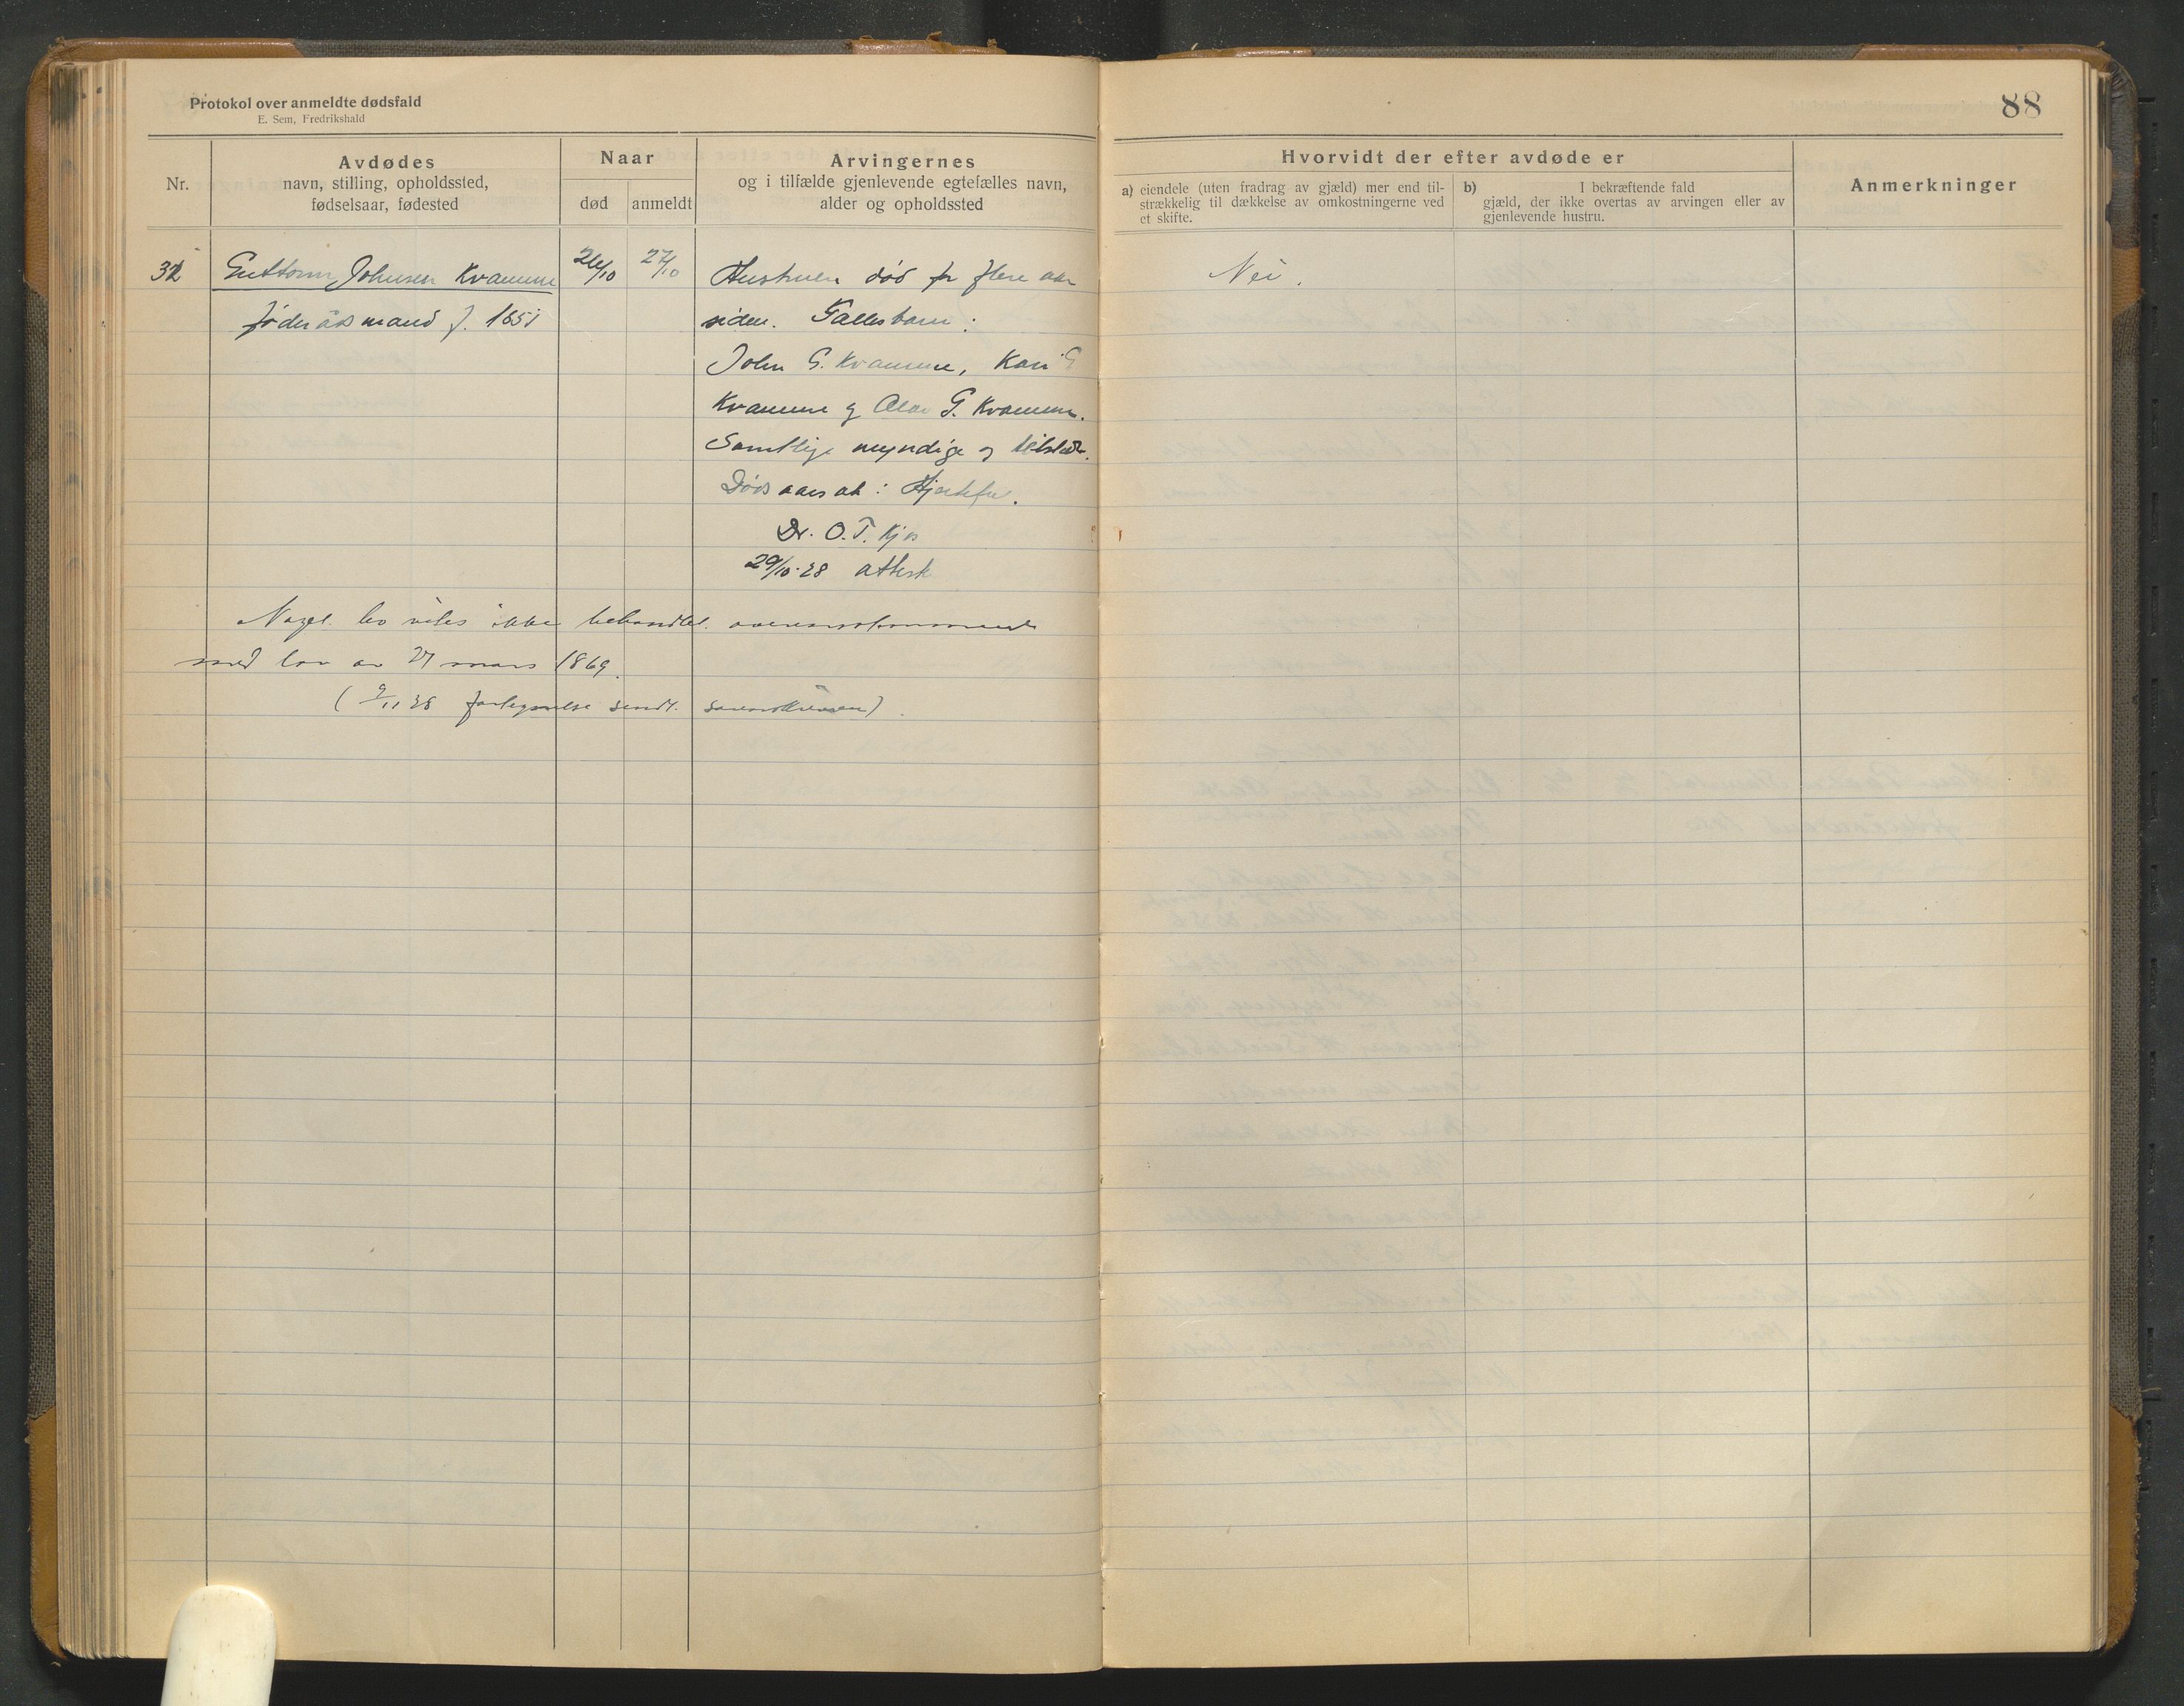 Protokol over anmeldte dødsfald
E. Sem, Fredrikshald
88
Nr.
Avdødes
navn, stilling, opholdssted,
fødselsaar, fødested
Naar
død
anmeldt
Arvingernes
og i tilfælde gjenlevende egtefælles navn,
alder og opholdssted
Hvorvidt der efter avdøde er
a) eiendele (uten fradrag av gjæld) mer end til-
strækkelig til dækkelse av omkostningerne ved
et skifte.
b) I bekræftende fald
gjæld, der ikke overtas av arvingen eller av
gjenlevende hustru.
Anmerkninger
32 Guttorm Johnsen Kvamme 26/10 27/10 Hustruen død for flere aar Nei.
føderådsmand f. 1851 siden. Fællesbarn:
John G. Kvamme, Kari G
Kvamme og Olav G. Kvamme.
Samtlige myndige og tilstede.
Dødsaarsak: Hjertefeil.
Dr. O. T. Kjos
29/10-28 attest
ikke behandlet overensstemmende
med lov av 27 mars 1869.
(9/11 28 sendt